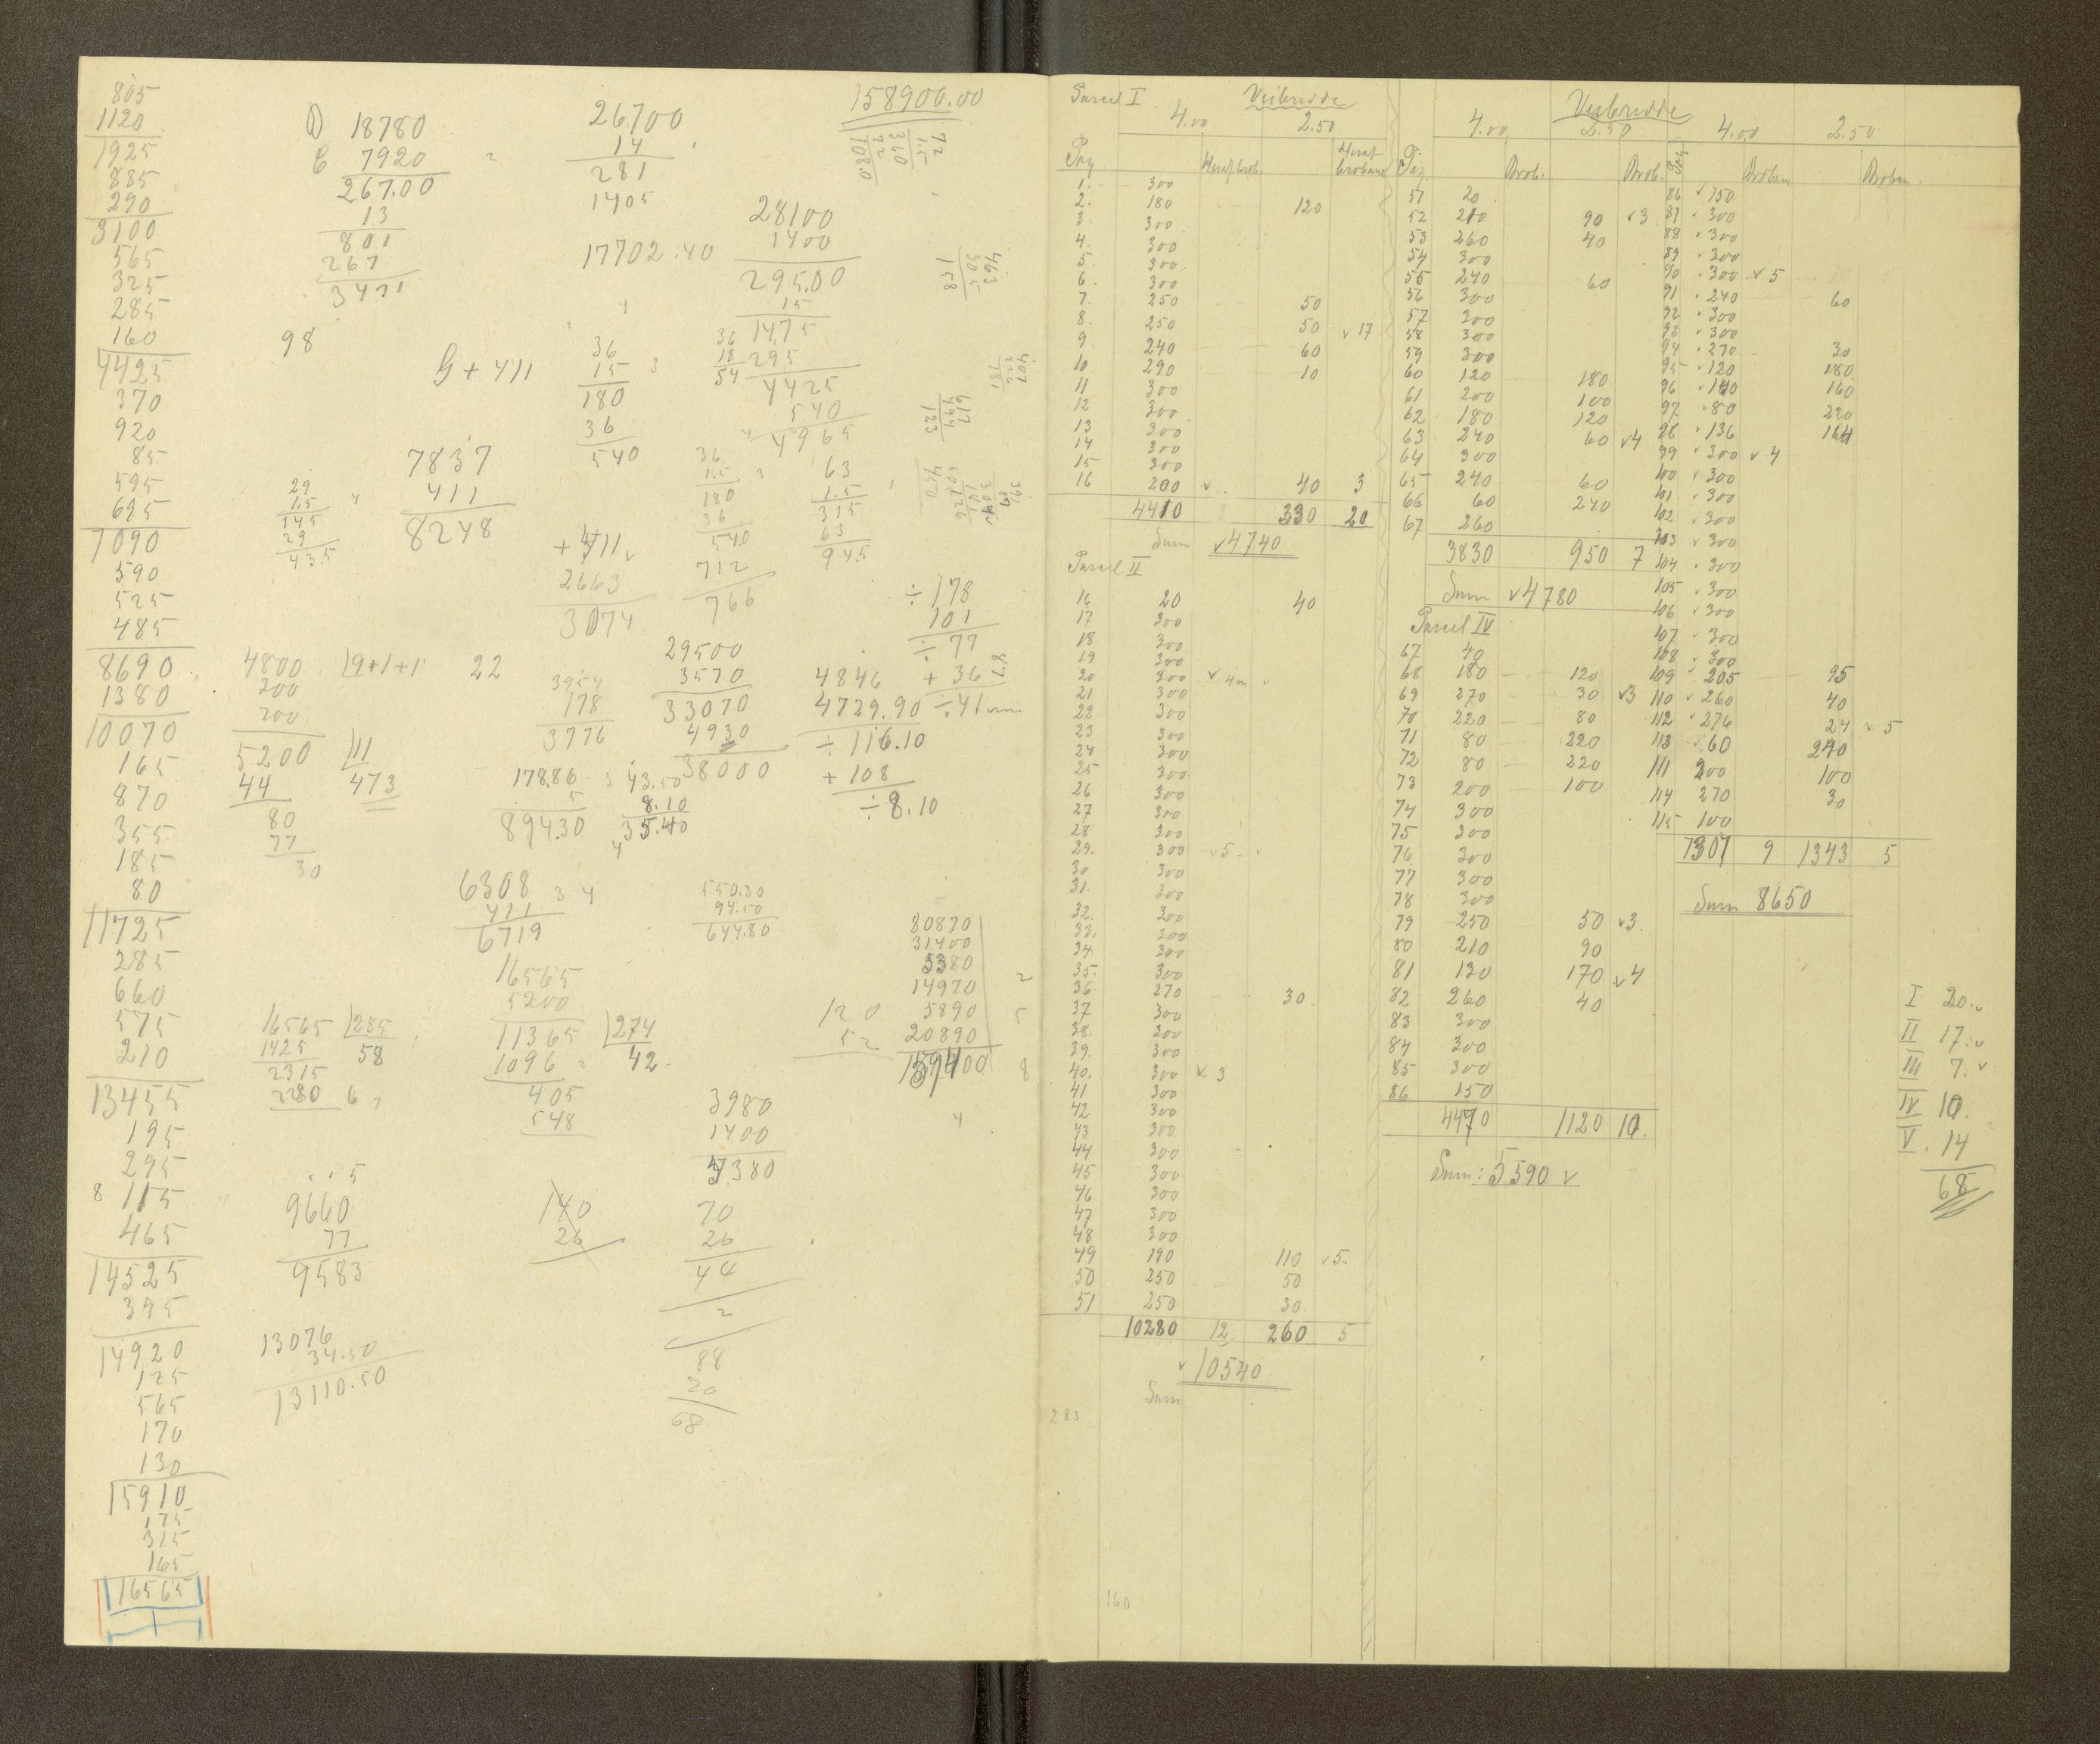 805
1120
1925
885
290
3100
565
325
285
160
4425
370
920
85
595
695
7090
590
525
485
8690
1380
10070
165
870
355
185
80
11725
285
660
575
210
13455
195
295
8 115
465
14525
395
14920
125
565
170
130
15910
175
315
165
16565
18780
7920
267.00
13
801
267
3471
98
G + 411
7837
411
8248
29
1.5
145
29
43.5
4800 19+1+1
200
200
5200 11
44 473
80
77
30
22
6308 3 4
411
6719
16565
5200
11365 274
1096 42.
405
548
16565 285
1425 58
2315
2280 6
9660
77
9583
13076
34.50
13110.50
26700
14
281
1405
17702.40
28100
1400
295.00
15
1475
295
4425
540
4965
36
15
180
36
540
36
18
54
36
1.5
180
36
540
712
766
63
1.5
315
63
94.5
+ 411
2663
3074
29500
3570
33070
4930
38000
3954
178
3776
17886
5
894.30
43.50
8.10
35.40
÷ 178
101
÷ 77
+ 36
÷ 41 mm
4846
4729.90
÷ 116.10
+ 108
÷ 8.10
550.30
94.50
644.80
80870
31400
5380
14970
5890
20890
120
52
3980
1400
5380
140
26
70
26
44
2
88
20
68
158900.00
72
1.5
360
72
108.0
463
305
158
617
494
123
Parcel I Veibredde
4.00 2.50
1. 300
2. 180 120
3. 300
4. 300
5. 300
6. 300
7. 250 50
8. 250 50 v 17
9. 240 60
10 290 10
11 300
12 300
13 300
14 300
15 300
16 200 v 40 3
4410 330 20
Sum v 4740
Parcel II
16 20 40
17 300
18 300
19 300
20 300 v 4m v
21 300
22 300
23 300
24 300
25 300
26 300
27 300
28 300
29. 300 v 5
30 300
31. 300
32. 300
33. 300
34. 300
35. 300
36. 270 30
37. 300
38. 300
39. 300
40. 300 v 3
41 300
42 300
43 300
44 300
45 300
46 300
47 300
48 300
49 190 110 v 5.
50 250 50
51 250 30
10280 12 260 5
v 10540
Sum
283
160
Veibredde
4.00 2.50 4.00 2.50
Brob. Brob.
51 20
52 210 90 v 3
53 260 40
54 300
55 240 60
56 300
57 300
58 300
59 300
60 120 180
61 200 100
62 180 120
63 240 60 v 4
64 300
65 240 60
66 60 240
67 260
3830 950 7
Sum v 4780
Parcel IV
67 40
68 180 120
69 270 30 v 3
70 220 80
71 80 220
72 80 220
73 200 100
74 300
75 300
76 300
77 300
78 300
79 250 50 v 3.
80 210 90
81 130 170 v 4
82 260 40
83 300
84 300
85 300
86 150
4470 1120 10.
Sum: 5590 v
86 v 150
87 300
88 300
89 300
90 300 v 5
91 240 60
92 300
93 300
94 270 30
95 120 180
96 140 160
97 80 220
98 136 164
99 v 300 v 4
100 v 300
101 300
102 v 300
103 v 300
104 300
105 v 300
106 v 300
107 300
108 300
109 205 95
110 v 260 40
112 276 24 v 5
113 60 240
111 200 100
114 270 30
115 100
7307 9 1343 5
Sum 8650
I 20. v
II 17. v
III 7. v
IV 10.
V. 14
68